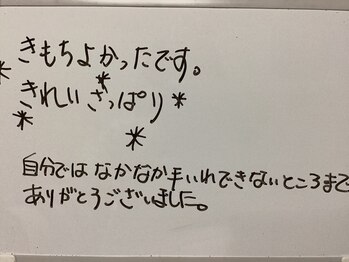 きもちよかったです。
きれいさっぱり
自分ではなかなか手いれできないところまで
ありがとうございました。